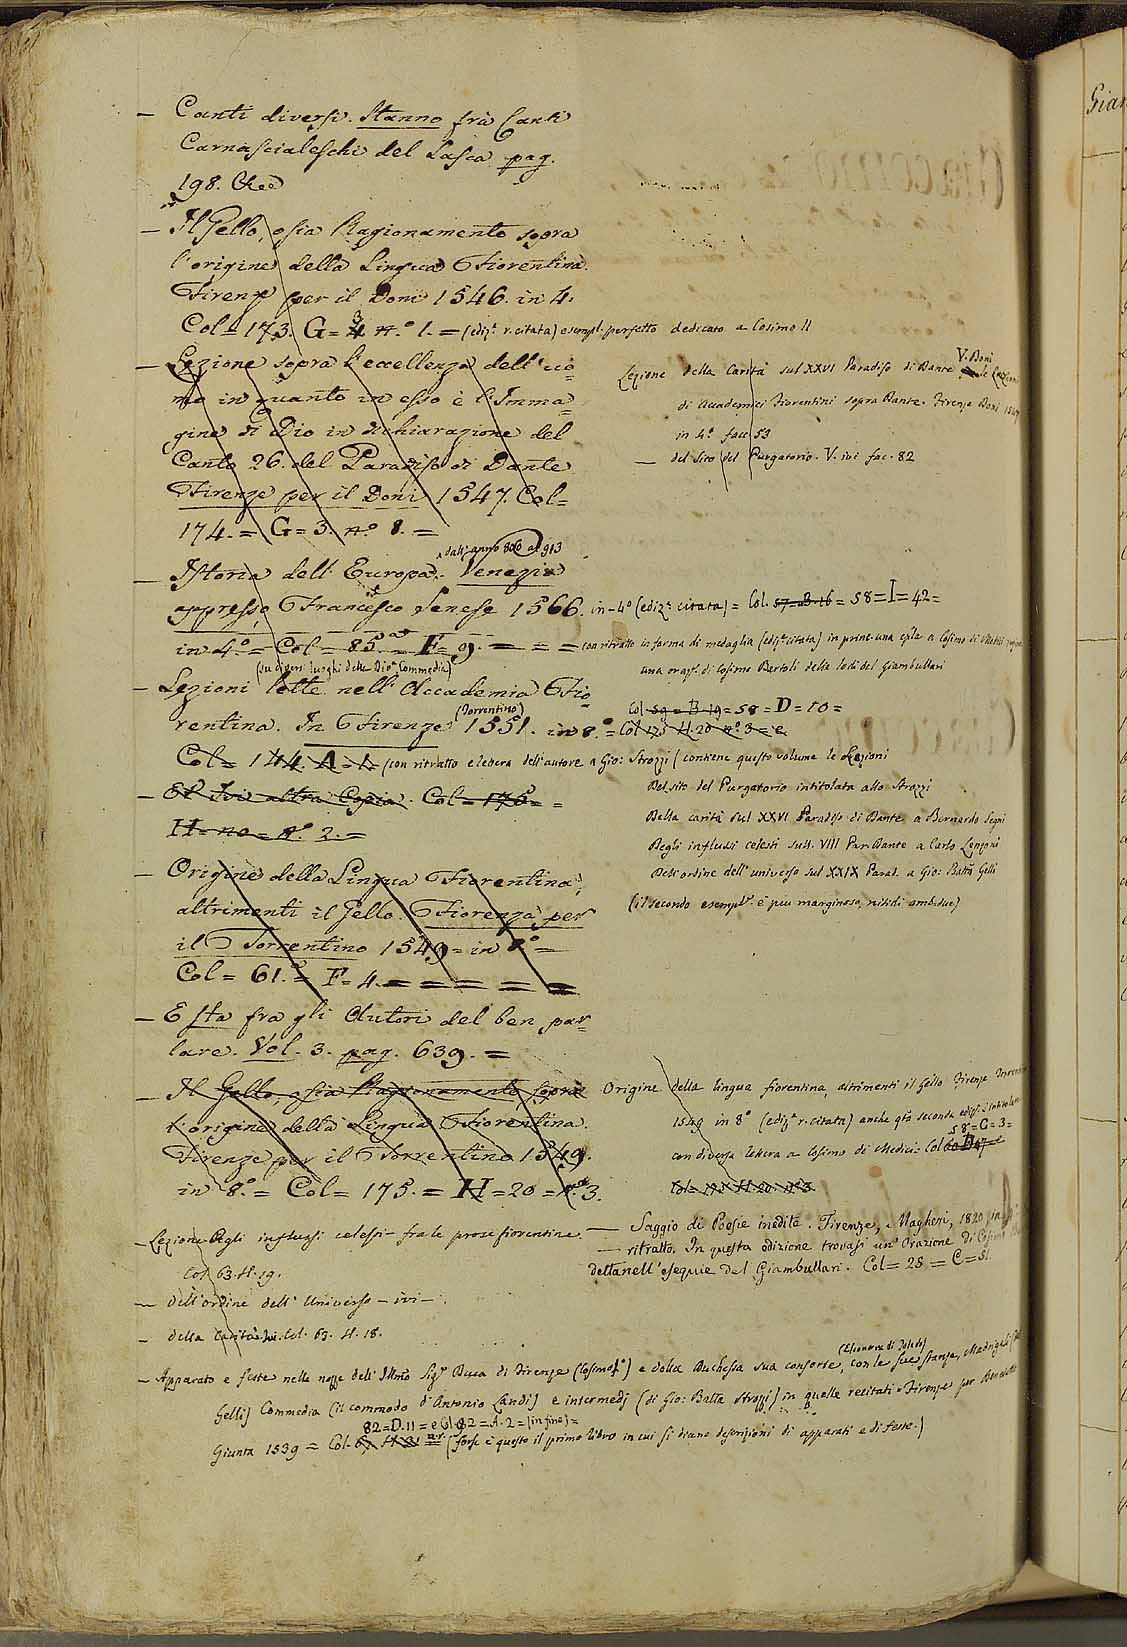 — Canti diversi. Stanno fra Canti
Carnascialeschi del Lasca pag.
198.
— Il Gello, osia Ragionamento sopra
l'origine della Lingua Fiorentina.
Firenze per il Doni 1546. in 4.
Col = 173. G = 3 N.º 1. = (ediz.e r. citata) esempl. perfetto dedicato a Cosimo II
— Lezione sopra l'eccellenza dell'uo=
mo in quanto in esso è l'Imma=
gine di Dio in dichiarazione del
Canto 26. del Paradiso di Dante
Firenze per il Doni 1547. Col=
174. = G = 3. N.º 8. =
Lezione della Carità sul XXVI Paradiso di Dante V. Doni le Lezioni
di Accademici Fiorentini sopra Dante. Firenze Doni 1547
in 4.º facc. 53
— del sito del Purgatorio. V. ivi fac. 82
— Istoria dell'Europa dall'anno 800 al 913. Venezia
appresso Francesco Senese 1566. in-4º (ediz.e citata) = Col. 57=B.16 = 58 = I = 42 =
in 4.º = Col = 85. = F = 9. = = = = con ritratto in forma di medaglia (ediz.e citata) in princ. una epla a Cosimo di Medici
una oraz. di Cosimo Bartoli delle lodi del Giambullari
(su diversi luoghi della Div.a Commedia)
— Lezioni lette nell'Accademia Fio=
rentina. In Firenze (Torrentino) 1551. in 8.º = Col 175 H 20 N.º 3 = e
Col 59 = B 19 = 58 = D = 10 =
Col = 144. A = 1. (con ritratto e lettera dell'autore a Gio: Strozzi (contiene questo volume le Lezioni
Del sito del Purgatorio intitolata allo Strozzi
Della carità sul XXVI Paradiso di Dante a Bernardo Segni
Degli influssi celesti sull. VIII Par. Dante a Carlo Lenzoni
Dell'ordine dell'universo sul XXIX Parad. a Gio: Batta Gelli
(il secondo esempl.e è più marginoso, nitidi ambidue)
— Ivi altra Copia. Col = 175 = =
H = 20 = N.º 2. =
— Origine della Lingua Fiorentina,
altrimenti il Gello. Fiorenza per
il Torrentino 1549 = in 8.º =
Col = 61. = F = 4. = = = = =
— E sta fra gli Autori del ben par=
lare. Vol. 3. pag. 639. =
— Il Gello, osia Ragionamento sopra
l'origine della Lingua Fiorentina.
Firenze per il Torrentino 1549.
in 8.º = Col = 175. = H = 20 = N.º 3.
Origine della lingua fiorentina, altrimenti il Gello Firenze Torrentino
1549 in 8º (ediz.e r. citata) anche q.ta seconda ediz.e è intitolata
con diversa lettera a Cosimo di Medici = Col 60 D 47 = e 58 = G = 3 =
Col = 175 H 20 N.º 3.
— Lezione Degli influssi celesti — fra le prose fiorentine.
Col 63. H. 19.
— dell'ordine dell'Universo — ivi —
— della Carità — ivi. Col. 63. H. 18.
— Saggio di Poesie inedite. Firenze, Magheri, 1820 in 8º
— ritratto. In questa edizione trovasi un'Orazione di Cosimo
detta nell'esequie del Giambullari. Col = 25 = C = 51.
— Apparato e feste nelle nozze dell'Illmo Sig.r Duca di Firenze (Cosimo I.º) e della Duchessa sua consorte, (Eleonora di Toledo) con le sue stanze, Madrigali
Gelli) Commedia (il commodo d'Antonio Landi) e intermedj (di Gio: Batta Strozzi) in quelle recitati Firenze per Benedetto
82 = D. 11 = e Col. 92 = A. 2 = (in fine) =
Giunta 1539 = Col. (forse è questo il primo libro in cui si diano descrizioni di apparati e di feste.)